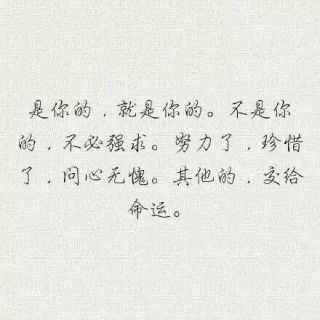 是你的，就是你的。不是你
的，不必强求。努力了，珍惜
了，问心无愧。其他的，交给
命运。